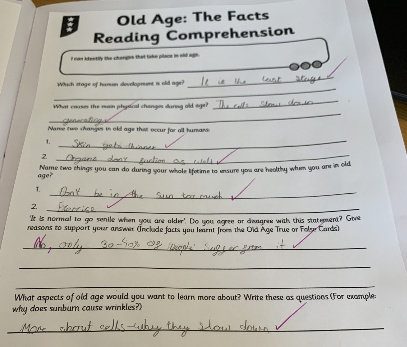 Old Age: The Facts
Reading Comprehension
I can identify the changes that take place in old age.
Which stage of human development is old age? It is the last stage
What causes the main physical changes during old age? The cells slow down
Name two changes in old age that occur for all humans:
1. Skin gets thinner
2. Organs don't function as well
Name two things you can do during your whole lifetime to ensure you are healthy when you are in old
age?
1. Don't be in the sun too much
2. Exercise
'It is normal to go senile when you are older'. Do you agree or disagree with this statement? Give
reasons to support your answer (Include facts you learnt from the Old Age True or False Cards)
No, only 30-50% of people suffer from it
What aspects of old age would you want to learn more about? Write these as questions (For example:
why does sunburn cause wrinkles?)
More about cells - why they slow down